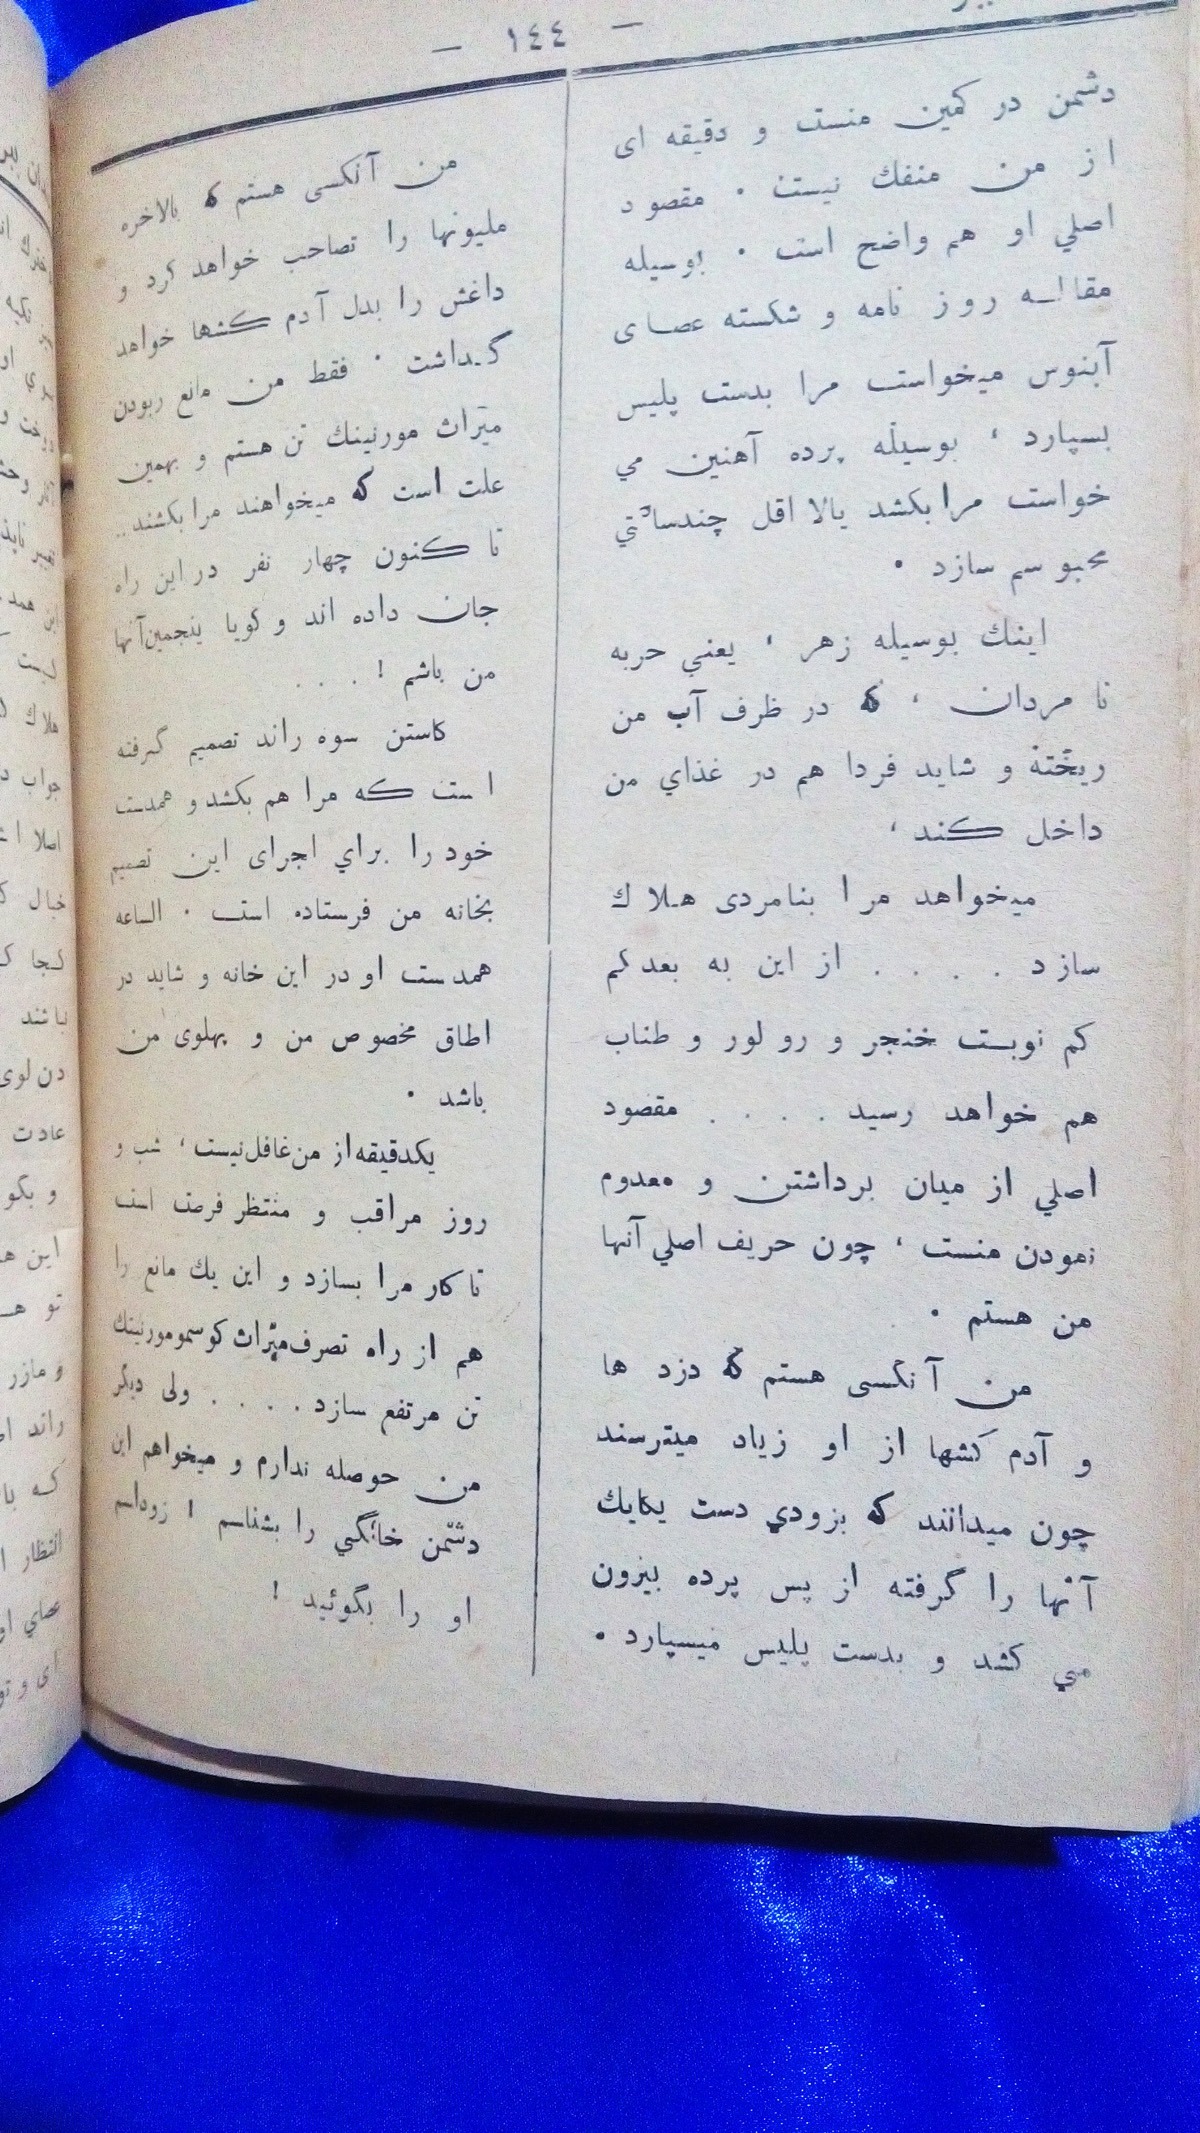 — ١٤٤ —
دشمن در كمين منست و دقيقه اى
از من منفك نيست . مقصود
اصلي او هم واضح است . بوسيله
مقاله روز نامه و شكسته عصاى
آبنوس ميخواست مرا بدست پليس
بسپارد ، بوسيله پرده آهنين مي
خواست مرا بكشد يا لا اقل چند ساعتي
محبوسم سازد .
اينك بوسيله زهر ، يعني حربه
نا مردان ، كه در ظرف آب من
ريخته و شايد فردا هم در غذاي من
داخل كند ،
ميخواهد مرا بنامردى هلاك
سازد . . . . از اين به بعد كم
كم نوبت خنجر و رولور و طناب
هم خواهد رسيد . . . . مقصود
اصلي از ميان برداشتن و معدوم
نمودن منست ، چون حريف اصلي آنها
من هستم .
من آنكسى هستم كه دزد ها
و آدم كشها از او زياد ميترسند
چون ميدانند كه بزودي دست يكايك
آنها را گرفته از پس پرده بيرون
مي كشد و بدست پليس ميسپارد .
من آنكسى هستم كه بالاخره
مليونها را تصاحب خواهد كرد و
داغش را بدل آدم كشها خواهد
گذاشت . فقط من مانع ربودن
ميراث مورنينك تن هستم و بهمين
علت است كه ميخواهند مرا بكشند ..
تا كنون چهار نفر در اين راه
جان داده اند و گويا پنجمين آنها
من باشم ! . . .
كاستن سوه راند تصميم گرفته
است كه مرا هم بكشد و همدست
خود را براي اجراى اين تصميم
بخانه من فرستاده است . الساعه
همدست او در اين خانه و شايد در
اطاق مخصوص من و پهلوى من
باشد .
يكدقيقه از من غافل نيست ، شب و
روز مراقب و منتظر فرصت است
تا كار مرا بسازد و اين يك مانع را
هم از راه تصرف ميراث كوسمو مورنينك
تن مرتفع سازد . . . . ولى ديگر
من حوصله ندارم و ميخواهم اين
دشمن خانگي را بشناسم ! زود اسم
او را بگوئيد !